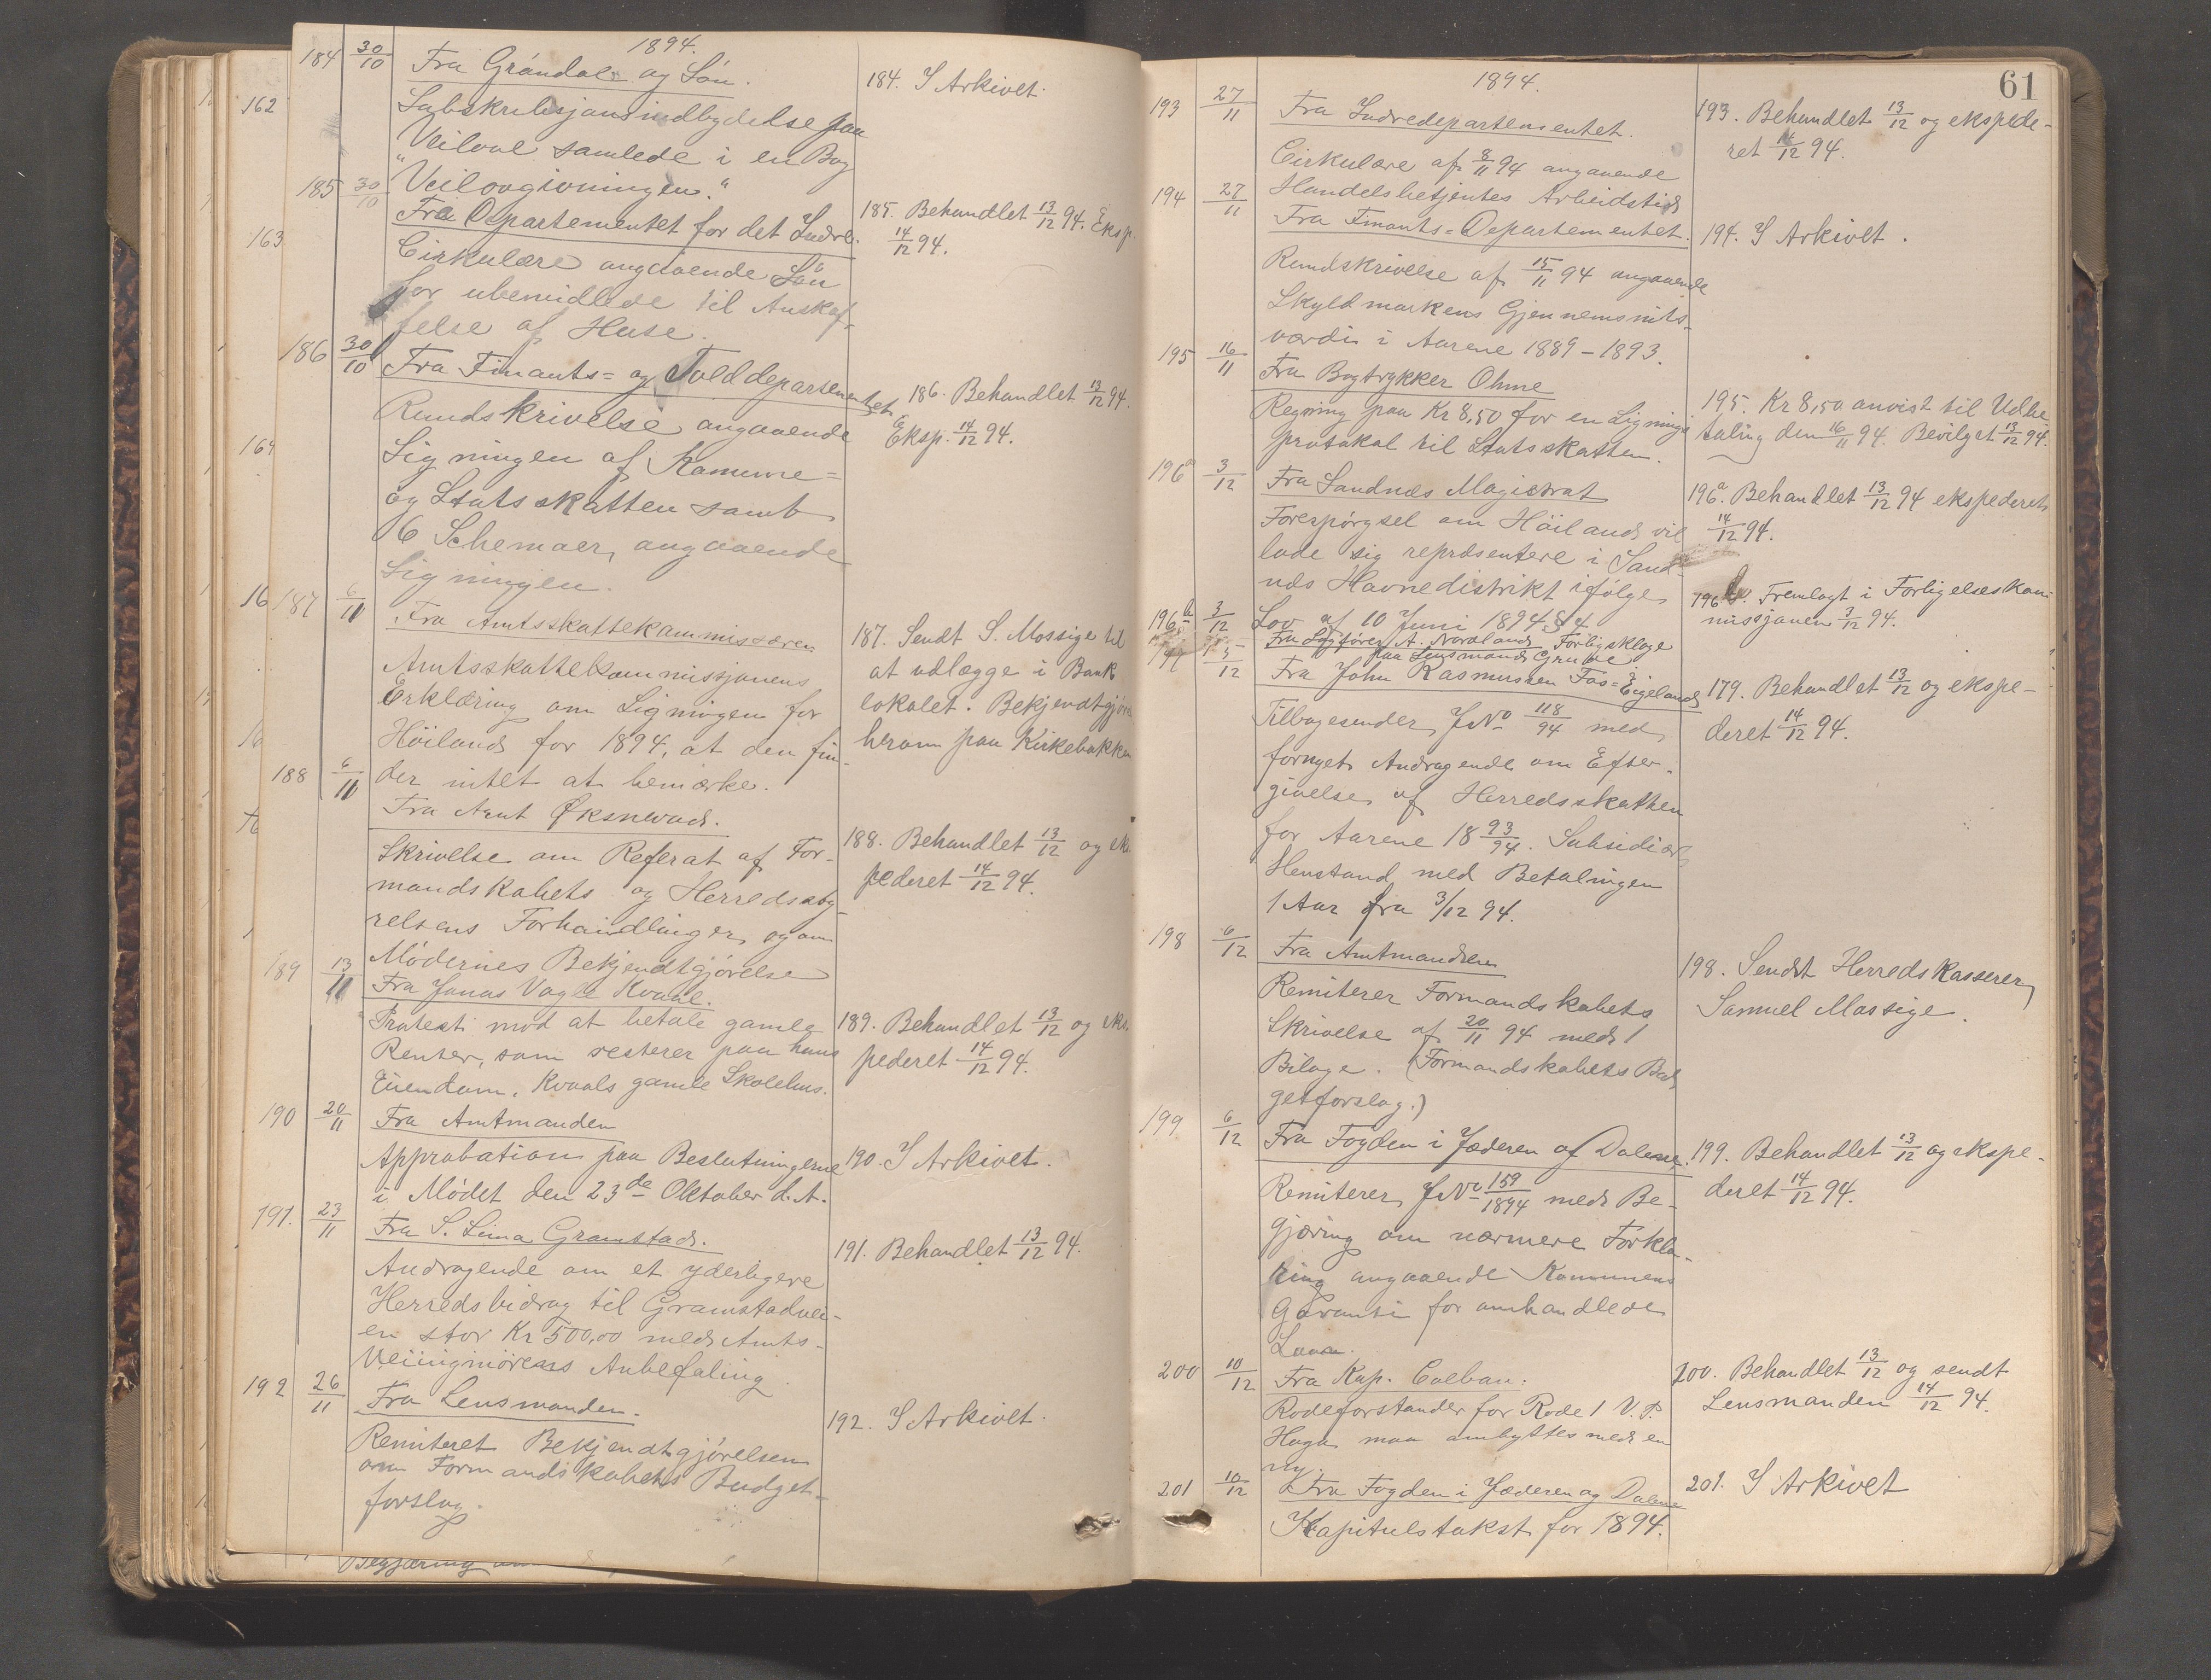 1894.
184 30/10 Fra Gröndal og Sön.
Subskribsjonsindbydelse paa
Veilove samlede i en Bog
"Veilovgivningen."
184. I Arkivet.
185 30/10 Fra Departementet for det Indre.
Cirkulære angaaende Lån
for ubemidlede til Anskaf-
felse af Huse.
185. Behandlet 13/12 94. Eksp.
14/12 94.
186 30/10 Fra Finants= og Tolddepartementet
Rundskrivelse angaaende
Ligningen af Komune=
og Statsskatten samt
6 Schemaer, angaaende
Ligningen.
186. Behandlet 13/12 94.
Eksp. 14/12 94.
187 6/11 Fra Amtsskattekommissæren
Amtsskattekommissjonens
Erklæring om Ligningen for
Höiland for 1894, at den fin-
der intet at bemærke.
187. Sendt S. Mossige til
at udlægge i Bank
lokalet. Bekjendtgjör
herom paa Kirkebakken
188 6/11 Fra Amt Øksnevad.
Skrivelse om Referat af For-
mandskabets og Herredssty-
relsens Forhandlinger, og om
Mödernes Bekjendtgjörelse
188. Behandlet 13/12 og eks.
pederet 14/12 94.
189 13/11 Fra Jonas Vagle Kvaal.
Protest mod at betale gamle
Renter, som resterer paa hans
Eiendom, Kvaals gamle Skolehus.
189. Behandlet 13/12 og eks.
pederet 14/12 94.
190 20/11 Fra Amtmanden
Approbation paa Beslutningerne
i Mödet den 23de Oktober d. A.
190. I Arkivet.
191. 23/11 Fra S. Lima Gramstad.
Andragende om et yderligere
Herredsbidrag til Gramstadvei-
en stor Kr 500,00 med Amts-
Veiingniörens Anbefaling.
191. Behandlet 13/12 94.
192 26/11 Fra Lensmanden.
Remiteret Bekjendtgjörelsen
om Formandskabets Budget-
forslag.
192. I Arkivet.
162
163
164
16
Begjæring
61
1894.
193 27/11 Fra Indredepartementet.
Cirkulære af 8/11 94 angaaende
Handelsbetjentes Arbeidstid
193. Behandlet 13/12 og ekspede-
ret 14/12 94.
194 27/11 Fra Finants=Departementet.
Rundskrivelse af 15/11 94 angaaende
Skyldmarkens Gjennemsnits-
værdi i Aarene 1889-1893.
194. I Arkivet.
195 16/11 Fra Bogtrykker Ohme
Regning paa Kr 8,50 for en Lignings
protokol til Statsskatten.
195. Kr 8,50 anvist til Udbe
taling den 16/11 94. Bevilget 13/12 94.
196a 3/12 Fra Sandnæs Magistrat
Forespörgsel om Höiland vil
lade sig repræsentere i Sand-
næs Havnedistrikt ifölge
Lov af 10 Juni 1894 § 4
196a. Behandlet 13/12 94 ekspederet
14/12 94.
196b 3/12 Fra Sagförer A. Nordland Forligsklage
paa Lensmand Grude
196b. Fremlagt i Forligelseskom
missjonen 3/12 94.
5/12 Fra John Rasmussen Fos=Eigeland
Tilbagesender JNo 118/94 med
fornyet Andragende om Efter-
givelse af Herredsskatten
for Aarene 18 93/94. Subsidiær
Henstand med Betalingen
1 Aar fra 3/12 94.
179. Behandlet 13/12 og ekspe-
deret 14/12 94.
198 6/12 Fra Amtmanden
Remiterer Formandskabets
Skrivelse af 20/11 94 med 1
Bilage. (Formandskabets Bud
getforslag.)
198. Sendt Herredskasserer
Samuel Mossige.
199 6/12 Fra Fogden i Jæderen og Dalene.
Remiterer JNo 159/1894 med Be-
gjæring om nærmere Forkla-
ring angaaende Kommunens
Garanti for omhandlede
Laan.
199. Behandlet 13/12 og ekspe-
deret 14/12 94.
200 10/12 Fra Kap. Colban.
Rodeforstander for Rode 1 V. P.
Haga maa ombyttes med en
ny.
200. Behandlet 13/12 og sendt
Lensmanden 14/12 94.
201 10/12 Fra Fogden i Jæderen og Dalene
Kapitulstakst for 1894.
201. I Arkivet